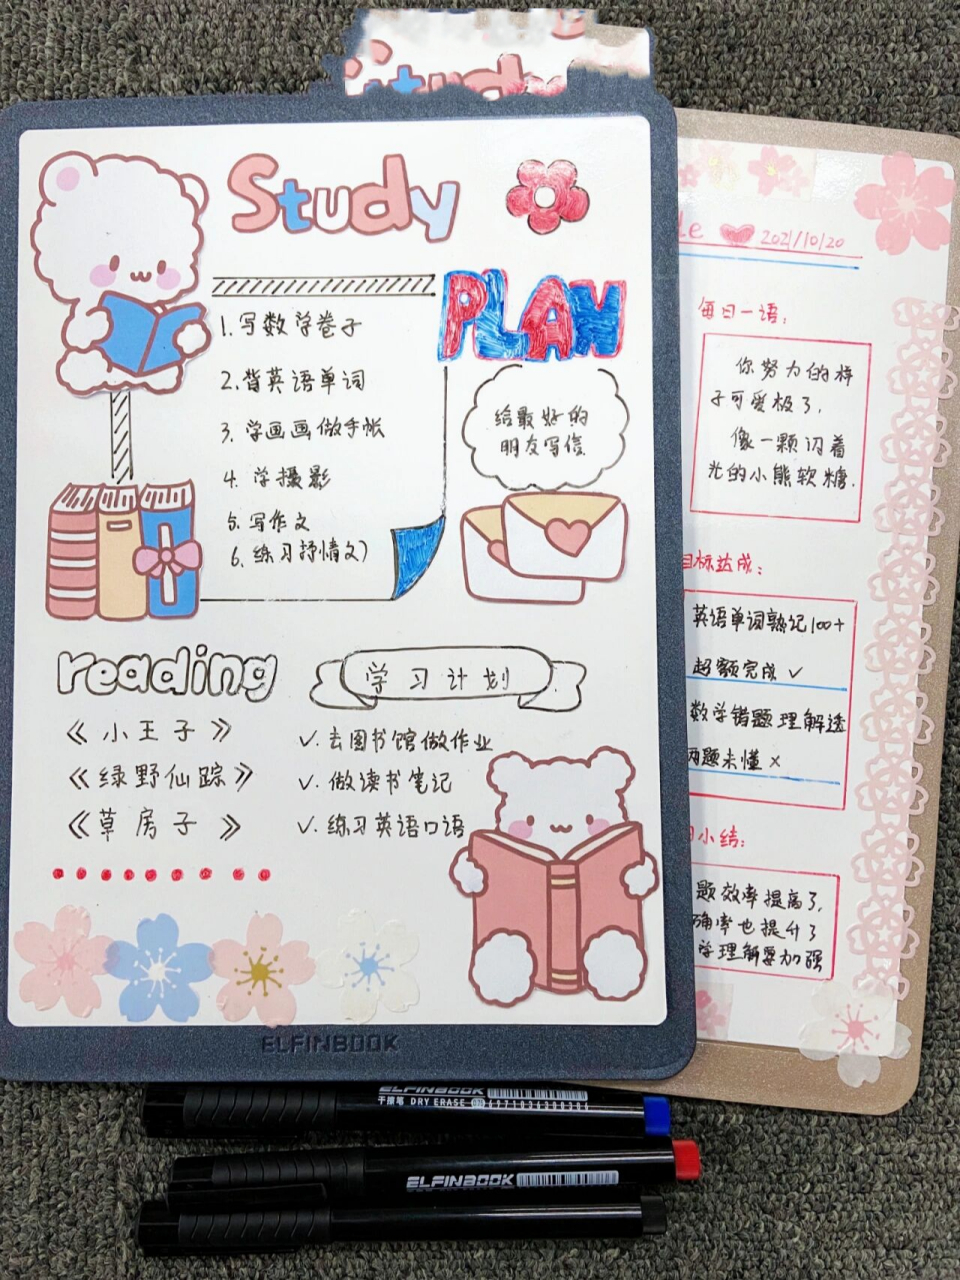 Study
Study
PLAN
1.写数学卷子
2.背英语单词
3.学画画做手帐
4.学摄影
5.写作文
6.练习抒情文)
给最好的
朋友写信
reading
《小王子》
《绿野仙踪》
《草房子》
学习计划
✓.去图书馆做作业
✓.做读书笔记
✓.练习英语口语
ELFINBOOK
2021/10/20
每日一语:
你努力的样
子可爱极了,
像一颗闪着
光的小熊软糖.
目标达成:
英语单词熟记100+
超额完成 ✓
数学错题理解透
两题未懂 ×
小结:
题效率提高了,
确率也提升了
学理解要加强
ELFINBOOK
干擦笔 DRY ERASE
ELFINBOOK